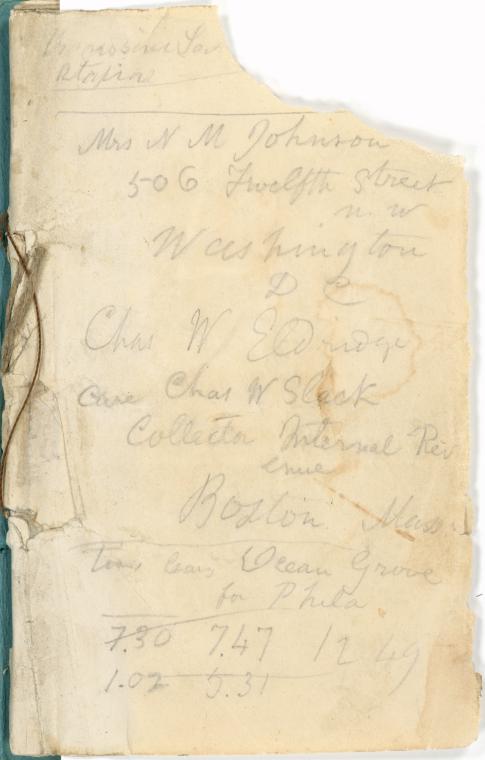 Station
Mrs N M Johnson
506 Twelfth Street
n. w
Washington
D C
Chas W Eldridge
Care Chas W Slack
Collector Internal Rev
enue
Boston Mass.
Ocean Grove
for Phila
7.30 7.47 12 49
1.02 5.31